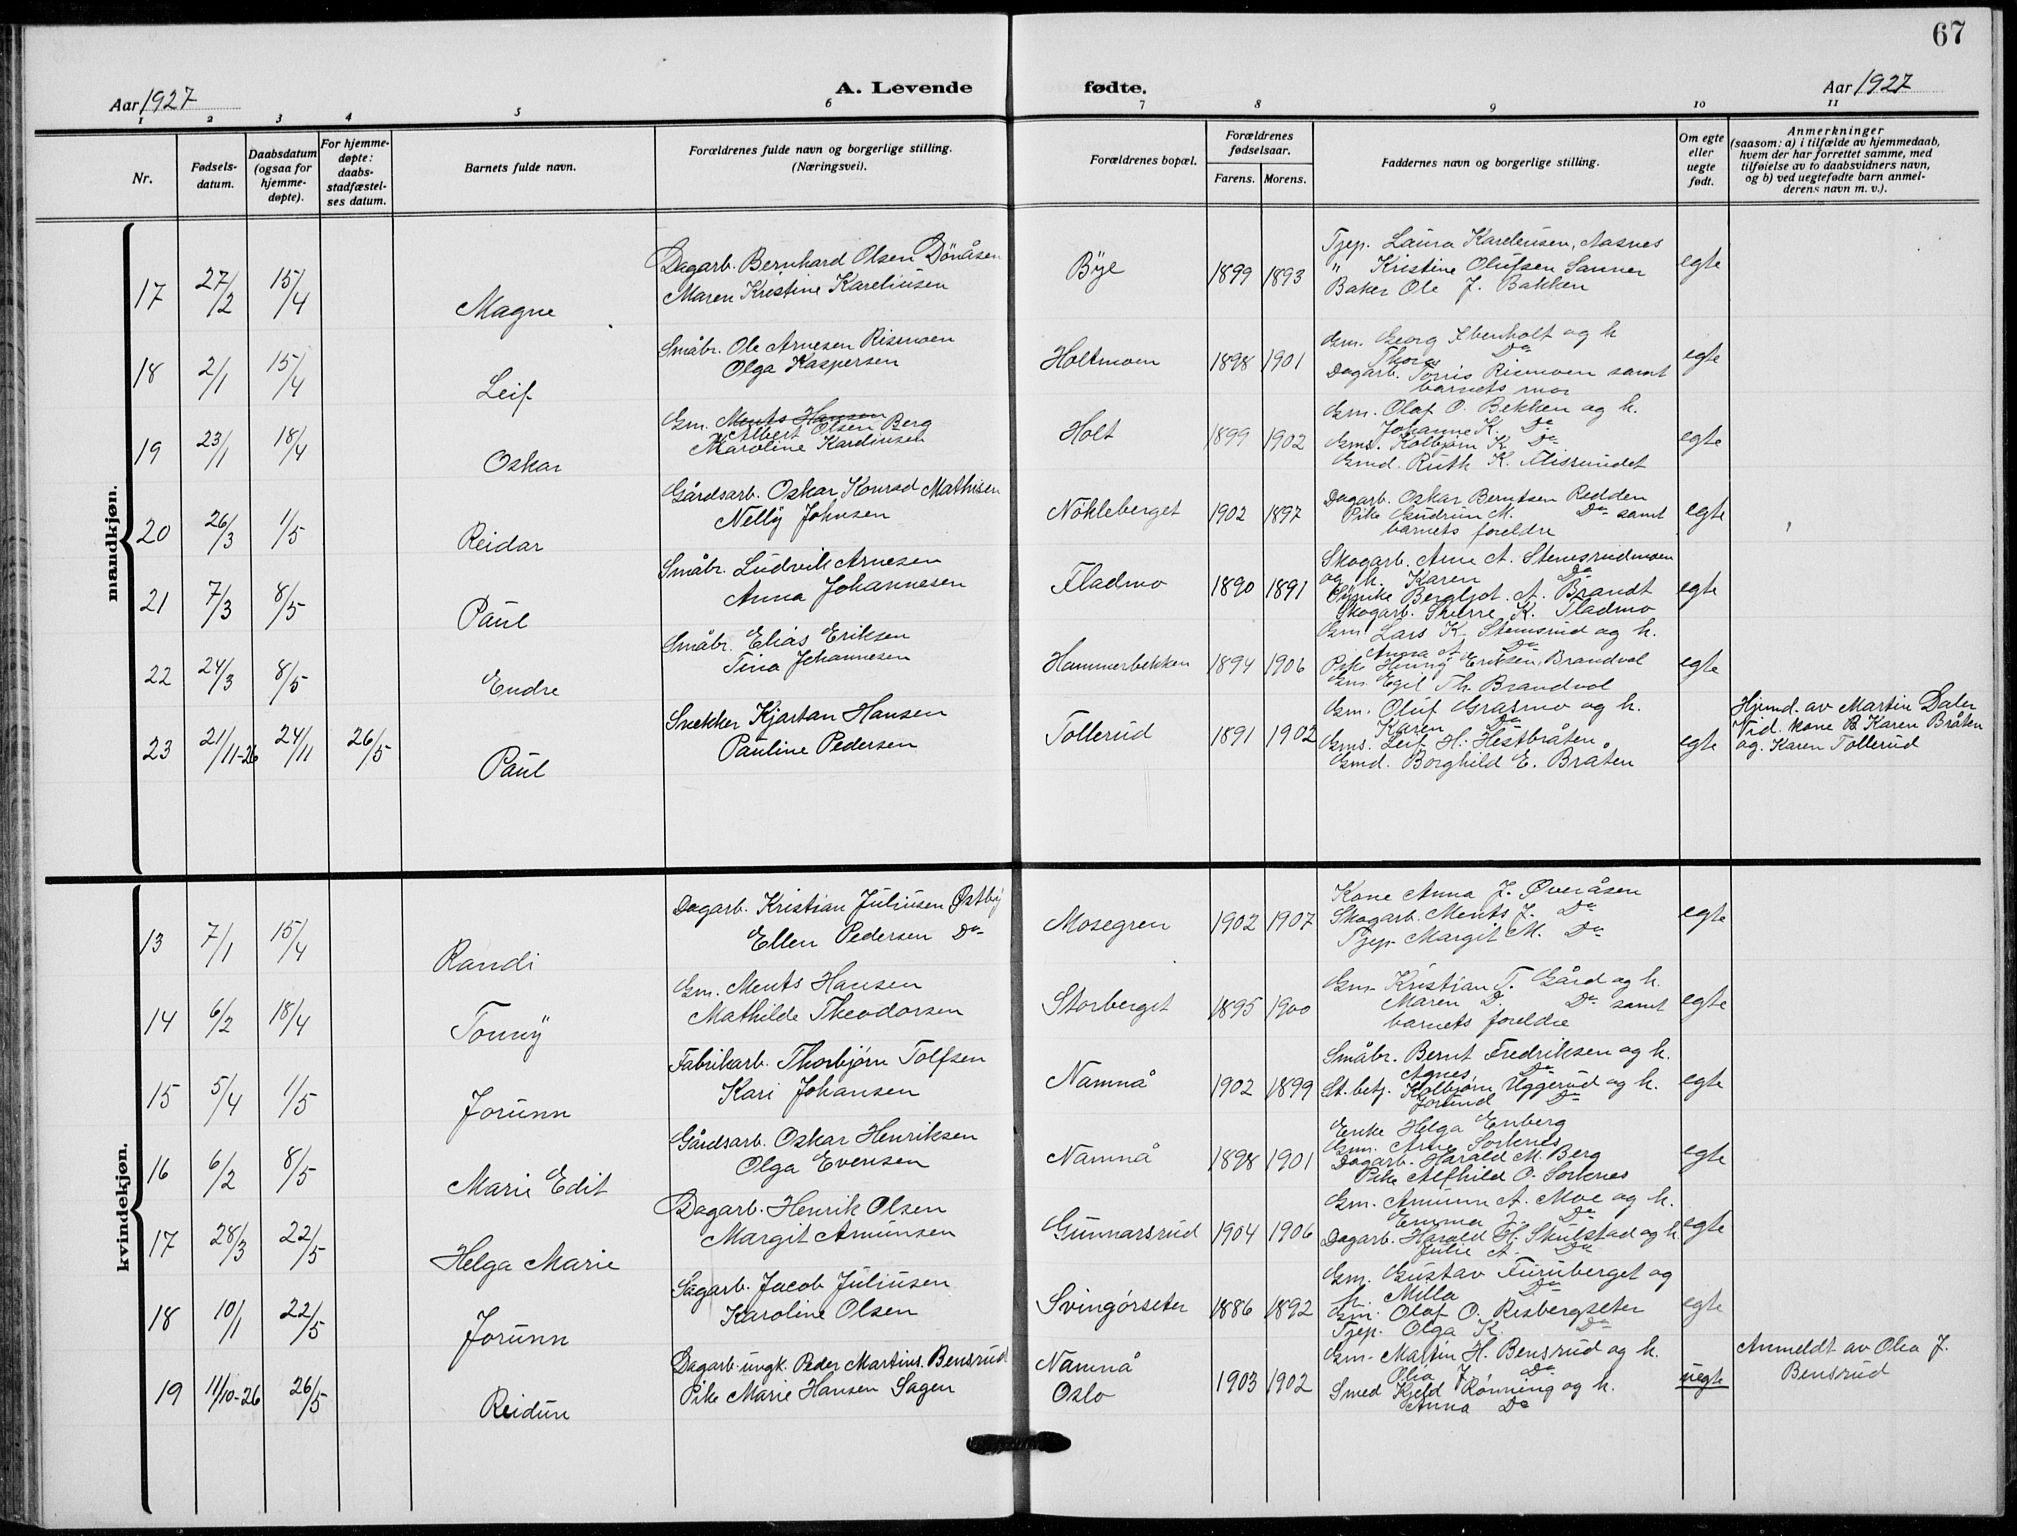 67
Aar 1927
A. Levende fødte.
Aar 1927
1 2 3 4 5 6 7 8 9 10 11
Nr.
Fødsels-
datum.
Daabsdatum
(ogsaa for
hjemme-
døpte).
For hjemme-
døpte:
daabs-
stadfæstel-
ses datum.
Barnets fulde navn.
Forældrenes fulde navn og borgerlige stilling.
(Næringsvei).
Forældrenes bopæl.
Forældrenes
fødselsaar.
Farens. Morens.
Faddernes navn og borgerlige stilling.
Om egte
eller
uegte
født.
Anmerkninger
(saasom: a) i tilfælde av hjemmedaab,
hvem der har forrettet samme, med
tilføielse av to daabsvidners navn,
og b) ved uegtefødte barn anmel-
derens navn m. v.).
mandkjøn.
17 27/2 15/4 Magne
Dagarb. Bernhard Olsen Dönåsen
Maren Kristine Kareliusen
Bye 1899 1893
Tjep. Laura Kareliusen, Aasnes
" Kristine Olufsen Sanner
Baker Ole J. Bakken
egte
18 2/1 15/4 Leif
Småbr. Ole Arnesen Rismoen
Olga Kaspersen
Holtmoen 1898 1901
Gm. Georg Ibenholt og h
Thora Do
Dagarb. Tönis Rismoen samt
barnets mor
egte
19 23/1 18/4 Oskar
Gm. Ments Hansen
Albert Olsen Berg
Karoline Kardinsen
Holt 1899 1902
Gm. Olaf O. Bekken og h.
Johanne K. Do
Gms. Kolbjørn K. Do
Gmd. Ruth K. Flisrundet
egte
20 26/3 1/5 Reidar
Gårdsarb. Oskar Konrad Mathisen
Nelly Johnsen
Nökleberget 1902 1897
Dagarb. Oskar Berntsen Rödden
Pike Gudrun M. Do samt
barnets foreldre
egte
21 7/3 8/5 Paul
Småbr. Ludvik Arnesen
Anna Johannesen
Fladmo 1890 1891
Skogarb. Arne A. Stemsrudmoen
og h. Karen Do
Pike Bergljot A. Brandt
Skogarb. Sverre K. Fladmo
egte
22 24/3 8/5 Endre
Småbr. Elias Eriksen
Tina Johannesen
Hammerbekken 1894 1906
Gm Lars K. Stemsrud og h.
Anna A. Do
Pike Henny Eriksen, Brandvol
Gm. Egil Th. Brandvol
egte
23 21/11-26 24/11 26/5 Paul
Snekker Kjartan Hansen
Pauline Pedersen
Tollerud 1891 1902
Gm. Oluf Grasmo og h.
Karen Do
Gms. Leif H. Hestbråten
Gmd. Borghild E. Bråten
egte
Hjemd. av Martin Dalen
Vid. kone B Karen Bråten
og. Karen Tollerud
kvindekjøn.
13 7/1 15/4 Randi
Dagarb. Kristian Juliusen Østby
Ellen Pedersen Do
Mosegren 1902 1907
Kone Anna J. Øveråsen
Skogarb. Ments J. Do
Tjep. Margit M. Do
egte
14 6/2 18/4 Tonny
Gm. Ments Hansen
Mathilde Theodorsen
Storberget 1895 1900
Gm. Kristian T. Gård og h.
Maren D. Do samt
barnets foreldre
egte
15 5/4 1/5 Jorunn
Fabrikarb. Thorbjørn Tolfsen
Kari Johansen
Namnå 1902 1899
Småbr. Bernt Fredriksen og h.
Agnes Do
St. betj. Kolbjørn Uggerud og h.
Jorund Do
egte
16 6/2 8/5 Marie Edit
Gårdsarb. Oskar Henriksen
Olga Evensen
Namnå 1898 1901
Enke Helga Enberg
Gm. Arne Sorknes
Dagarb. Harald M. Berg
Pike Alfhild O. Sorknes
egte
17 28/3 22/5 Helga Marie
Dagarb. Henrik Olsen
Margit Amunsen
Gunnarsrud 1904 1906
Gm. Amunn A. Moe og h.
Emma J. Do
Dagarb. Harald H. Skulstad og h
Julie A. Do
egte
18 10/1 22/5 Jorunn
Sagarb. Jacob Juliusen
Karoline Olsen
Svingörseter 1886 1892
Gm. Gustav Furuberget og
h. Milla Do
Gm. Olaf O. Risbergseter
Tjep. Olga K. Do
egte
19 11/10-26 26/5 Reidun
Dagarb. ungk. Peder Martins. Bensrud
Pike Marie Hansen Sagen
Namnå
Oslo
1903 1902
Gm. Martin H. Bensrud og h.
Olia J. Do
Smed Kjeld Rønning og h.
Anna Do
uegte
Anmeldt av Olea J.
Bensrud